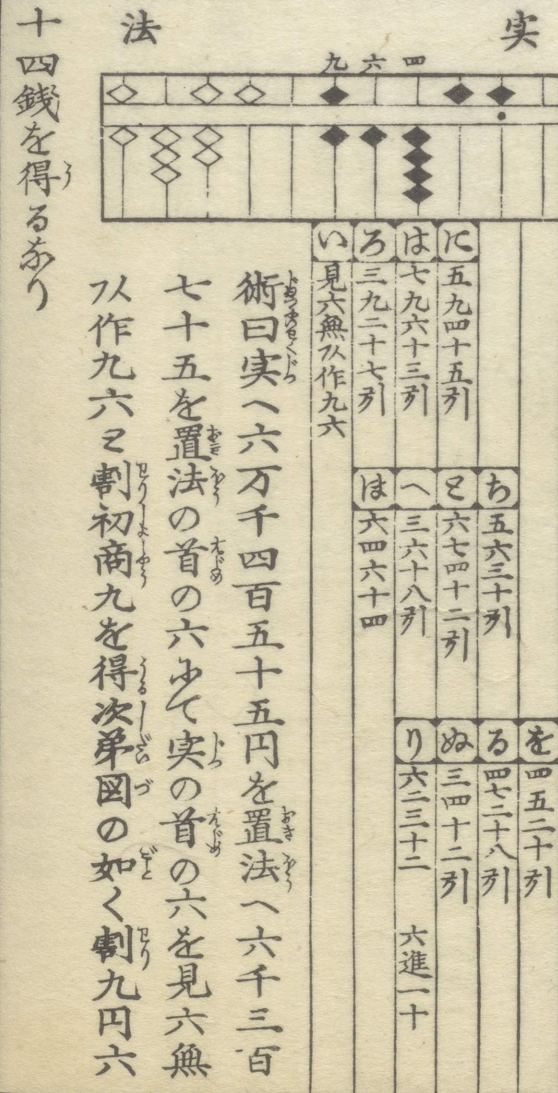 実
法
四
六
九
に 五九四十五引
は 七九六十三引
ろ 三九二十七引
い 見六無㕥作九六
ち 五六三十引
と 六七四十二引
へ 三六十八引
ほ 六四六十四
を 四五二十引
る 四七二十八引
ぬ 三四十二引
り 六二三十二 六進一十
術曰実へ六万千四百五十五円を置法へ六千三百
七十五を置法の首の六にて実の首の六を見六無
㕥作九六と割初商九を得次第図の如く割九円六
十四銭を得るなり